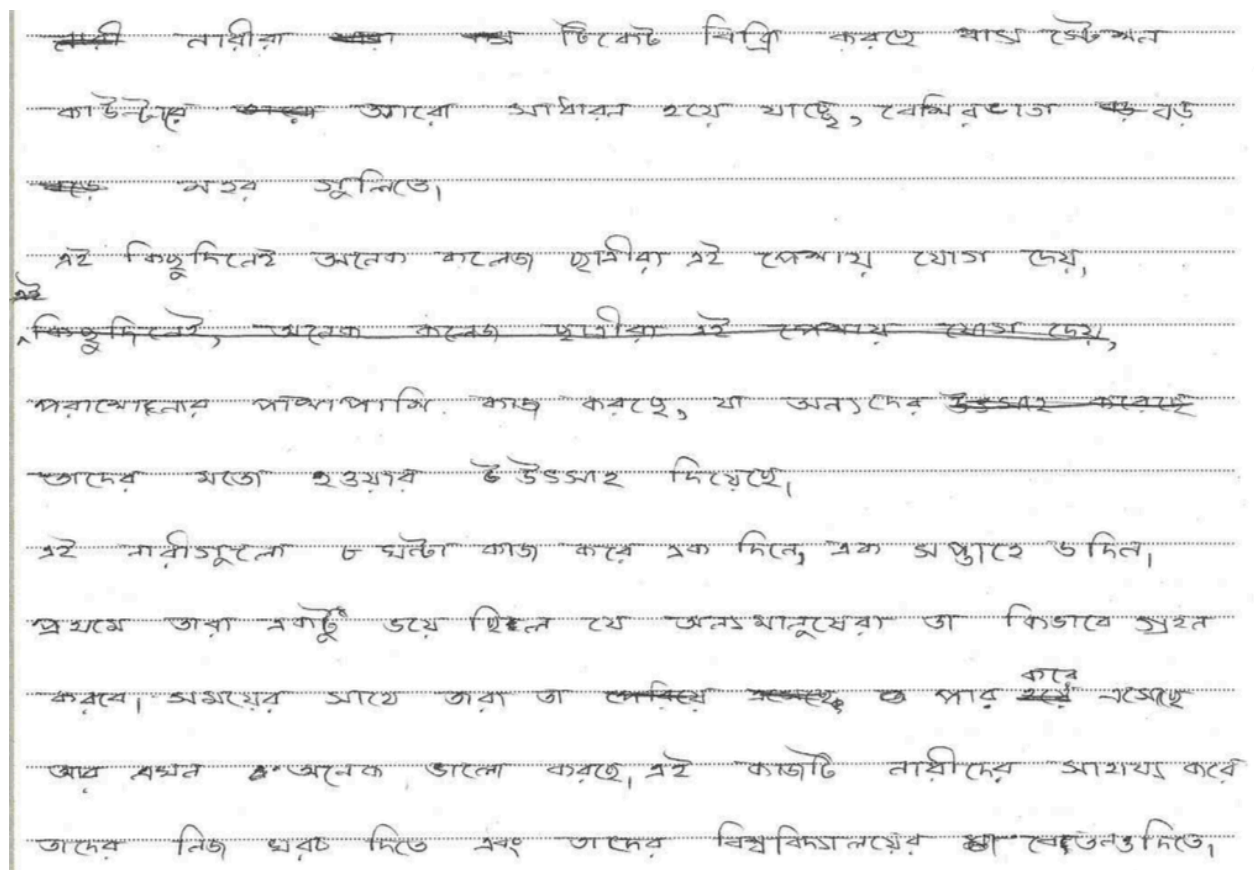 নারীরা টিকেট বিক্রি করছে বাস স্টেশন
কাউন্টারে আরো সাধারন হয়ে যাচ্ছে, বেশিরভাগ বড়
শহর গুলিতে।
এই কিছুদিনেই অনেক কলেজ ছাত্রীরা এই পেশায় যোগ দেয়,
এই
কিছুদিনেই, অনেক কলেজ ছাত্রীরা এই পেশায় যোগ দেয়,
পরাশোনার পাশাপাশি কাজ করছে, যা অন্যদের উৎসাহ করেছে
তাদের মতো হওয়ার উৎসাহ দিয়েছে।
এই নারীগুলো ৮ ঘন্টা কাজ করে এক দিনে, এক সপ্তাহে ৬ দিন।
প্রথমে তারা একটু ভয়ে ছিল যে অন্য মানুষেরা তা কিভাবে গ্রহন
করবে। সময়ের সাথে তারা তা পেরিয়ে এসেছে পার করে এসেছে
আর এখন অনেক ভালো করছে। এই কাজটি নারীদের সাহায্য করে
তাদের নিজ খরচ দিতে এবং তাদের বিশ্ববিদ্যালয়ের বেতনও দিতে।